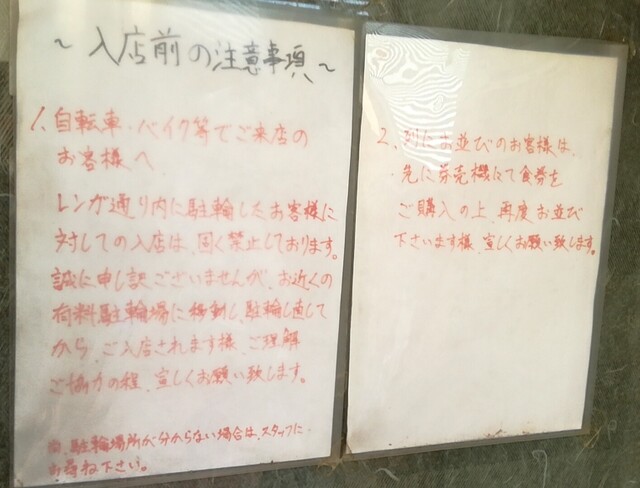 ～入店前の注意事項～
1、自転車・バイク等でご来店の
お客様へ
レンガ通り内に駐輪したお客様に
対しての入店は、固く禁止しております。
誠に申し訳ございませんが、お近くの
有料駐輪場に移動し、駐輪し直して
から、ご入店されます様、ご理解
ご協力の程、宜しくお願い致します。
尚、駐輪場所が分からない場合は、スタッフに
お尋ね下さい。
2、列にお並びのお客様は、
先に券売機にて食券を
ご購入の上、再度お並び
下さいます様、宜しくお願い致します。